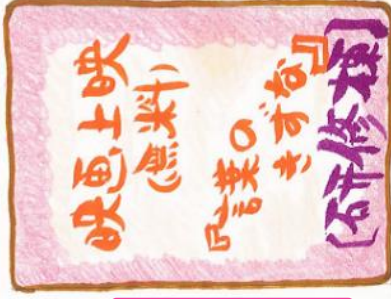 映画上映
(無料)
『言葉の
きずな』
(研修棟)